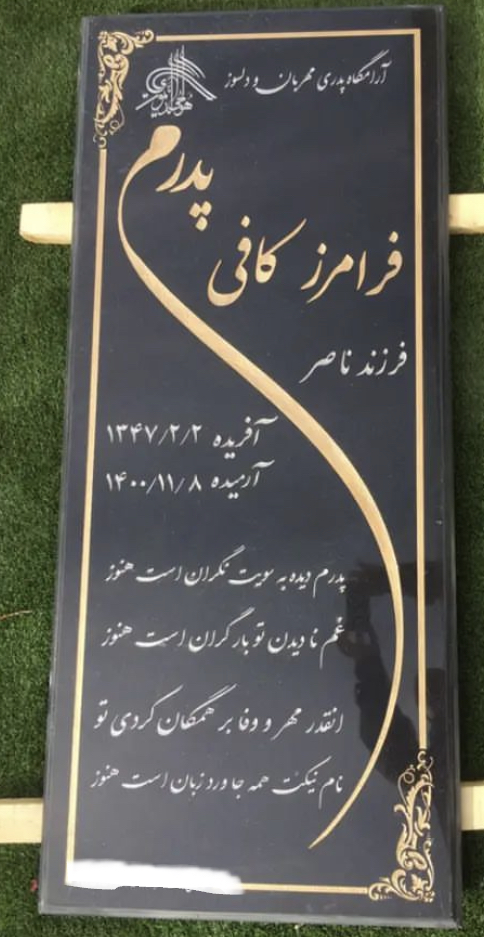 آرامگاه پدری مهربان و دلسوز
هوالحی الذی لا یموت
پدرم
فرامرز کافی
فرزند ناصر
آفریده ۱۳۴۷/۲/۲
آرمیده ۱۴۰۰/۱۱/۸
پدرم دیده به سویت نگران است هنوز
غم نادیدن تو بار گران است هنوز
انقدر مهر و وفا بر همگان کردی تو
نام نیکت همه جا ورد زبان است هنوز